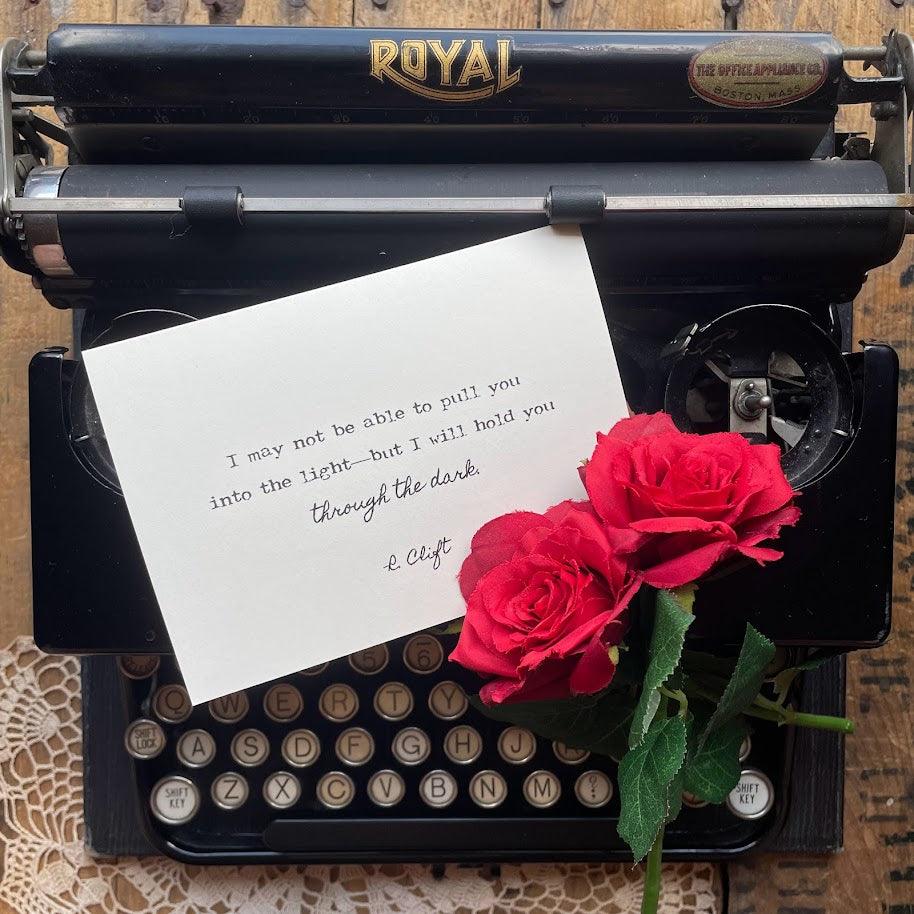 ROYAL
THE OFFICE APPLIANCE CO.
BOSTON, MASS
I may not be able to pull you
into the light—but I will hold you
through the dark.
R. Clift
5 6
Q W E R T Y
SHIFT LOCK A S D F G H J
SHIFT KEY Z X C V B N M ? : SHIFT KEY